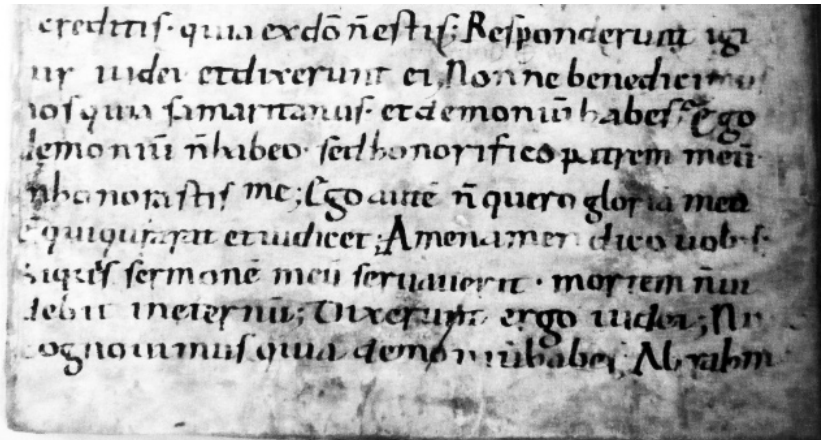 creditis· quia exdō n̄estis; Responderunt igi
ur iudei etdixerunt ei, Nonne benedicimus
nos quia samaritanus· etdemoniū habes; Ego
demoniū n̄habeo· sedhonorifico patrem meū
n̄honorastis me; Ego autē n̄ quero gloriā meā
ē quiquerat etiudicet; Amenamen dico uobis·
siquis sermonē meū seruauerit · mortem n̄ui
debit ineternū; Dixerunt ergo iudei; Nu
cognouimus quia demoniūhabes; Abraham